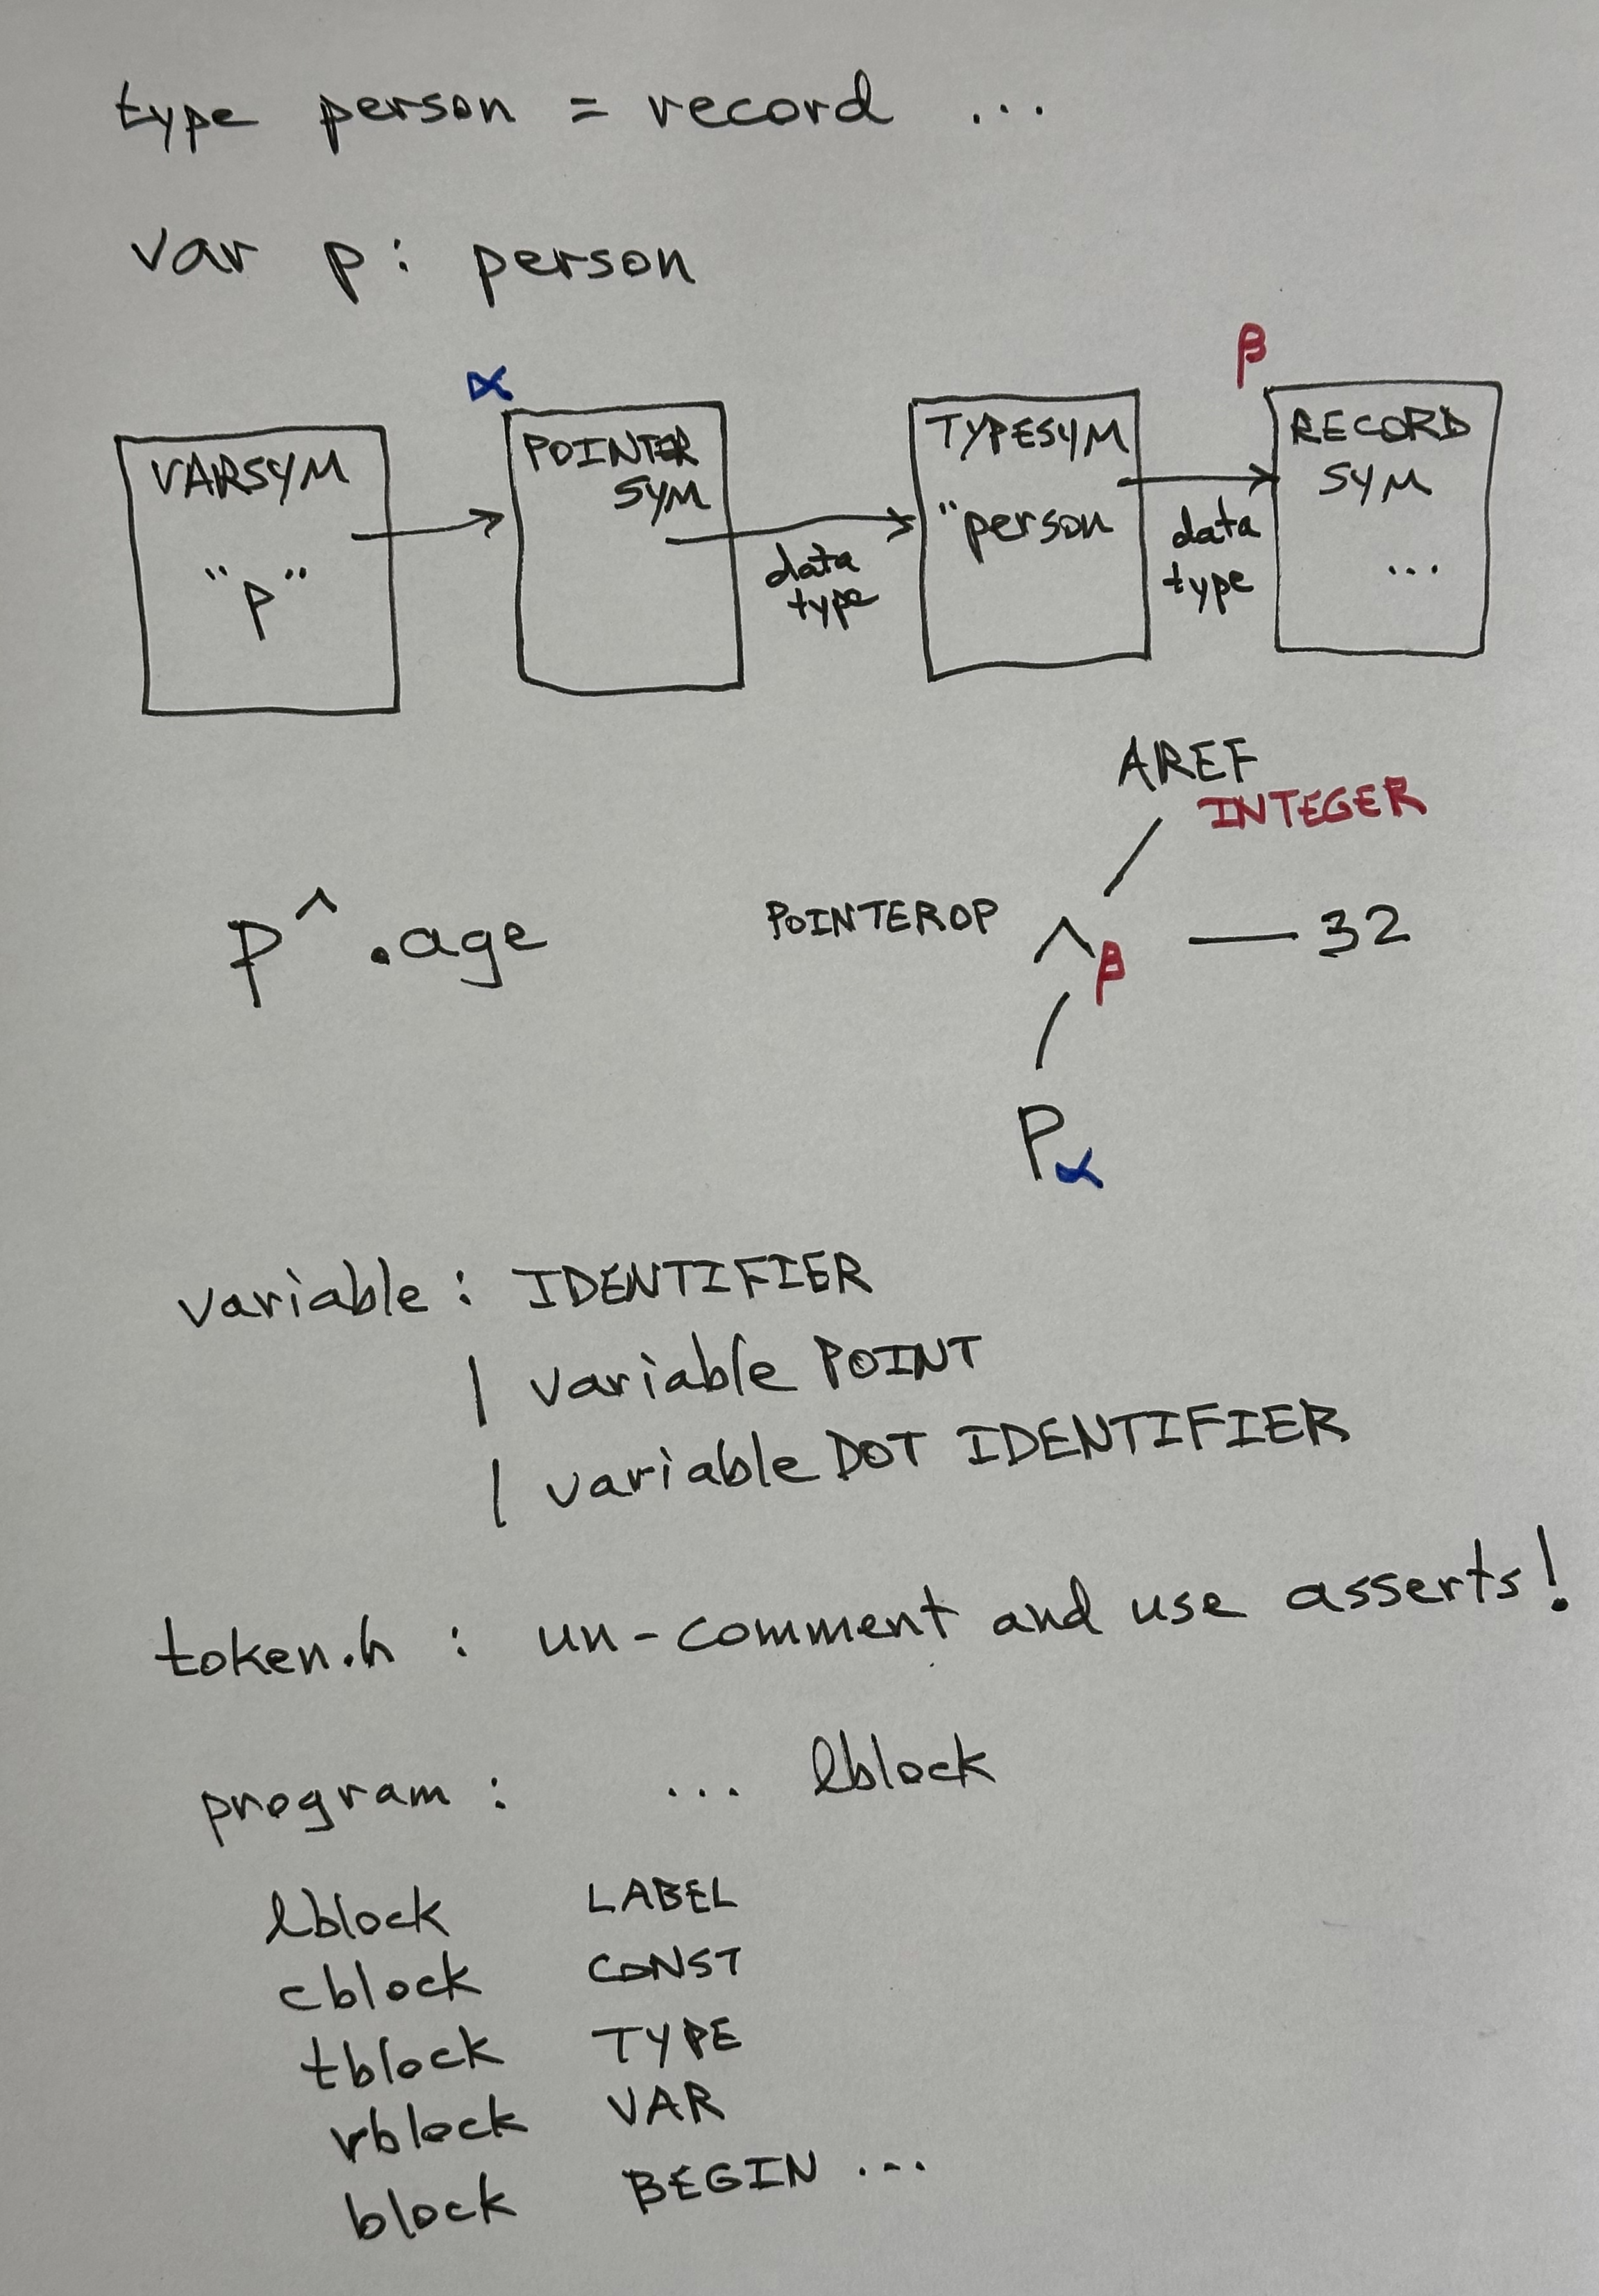 type person = record ...
var p: person
α
β
VARSYM
"p"
POINTER
SYM
data
type
TYPESYM
"person
data
type
RECORD
SYM
...
AREF
INTEGER
p^.age
POINTEROP ^β — 32
Pα
variable : IDENTIFIER
| variable POINT
| variable DOT IDENTIFIER
token.h : un-comment and use asserts!
program : ... lblock
lblock LABEL
cblock CONST
tblock TYPE
vblock VAR
block BEGIN ...